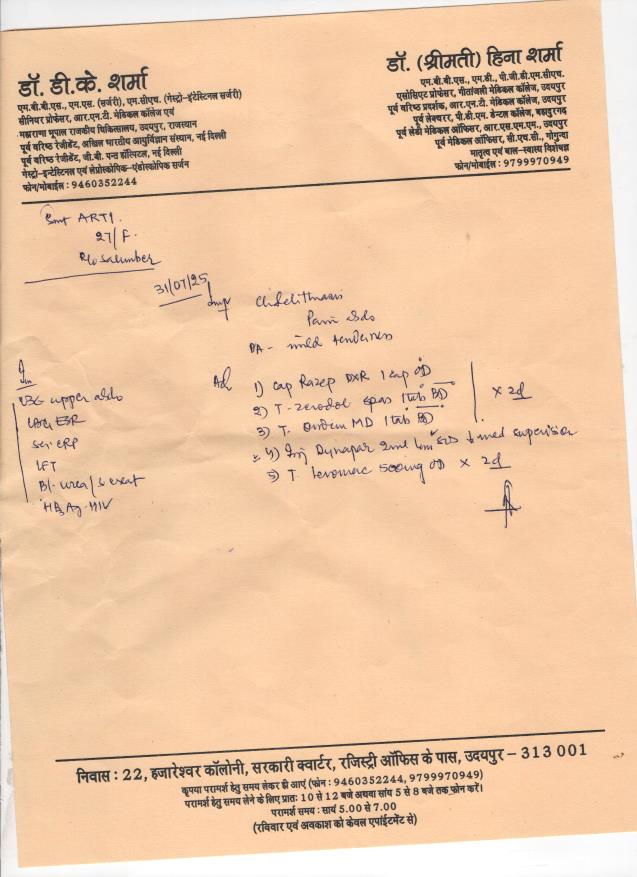 डॉ. डी.के. शर्मा
एम.बी.बी.एस., एम.एस. (सर्जरी), एम.सीएच. (गेस्ट्रो-इंटेस्टिनल सर्जरी)
सीनियर प्रोफेसर, आर.एन.टी. मेडिकल कॉलेज एवं
महाराणा भूपाल राजकीय चिकित्सालय, उदयपुर, राजस्थान
पूर्व वरिष्ठ रेजीडेंट, अखिल भारतीय आयुर्विज्ञान संस्थान, नई दिल्ली
पूर्व वरिष्ठ रेजीडेंट, जी.बी. पन्त हॉस्पिटल, नई दिल्ली
गेस्ट्रो-इन्टेस्टिनल एवं लेप्रोस्कोपिक-एंडोस्कोपिक सर्जन
फोन/मोबाईल : 9460352244
डॉ. (श्रीमती) हिना शर्मा
एम.बी.बी.एस., एम.डी., पी.जी.डी.एम.सीएच.
एसोसिएट प्रोफेसर, गीतांजली मेडिकल कॉलेज, उदयपुर
पूर्व वरिष्ठ प्रदर्शक, आर.एन.टी. मेडिकल कॉलेज, उदयपुर
पूर्व लेक्चरर, पी.डी.एम. डेन्टल कॉलेज, बहादुरगढ़
पूर्व लेडी मेडिकल ऑफिसर, आर.एस.एम.एम., उदयपुर
पूर्व मेडिकल ऑफिसर, सी.एच.सी., गोगुन्दा
मातृत्व एवं बाल-स्वास्थ्य विशेषज्ञ
फोन/मोबाईल : 9799970949
Smt ARTI.
27/F.
R/o Salumber
31/07/25
Imp
Pain abdo
PA - mild tenderness
USG upper abdo
ESR
CRP
LFT
Bl. urea/S creat
HIV
Ad
1) Cap Razep DXR 1 cap OD
2) T- zerodol spas 1 tab BD
3) T. Ondem MD 1 tab BD
x 2d
4) Inj Dynapar 2ml I/m med supervision
5) T. levomac 500mg OD x 2d
निवास : 22, हजारेश्वर कॉलोनी, सरकारी क्वार्टर, रजिस्ट्री ऑफिस के पास, उदयपुर – 313 001
कृपया परामर्श हेतु समय लेकर ही आएं (फोन : 9460352244, 9799970949)
परामर्श हेतु समय लेने के लिए प्रातः 10 से 12 बजे अथवा सांय 5 से 8 बजे तक फोन करें।
परामर्श समय : सायं 5.00 से 7.00
(रविवार एवं अवकाश को केवल एपॉईंटमेंट से)